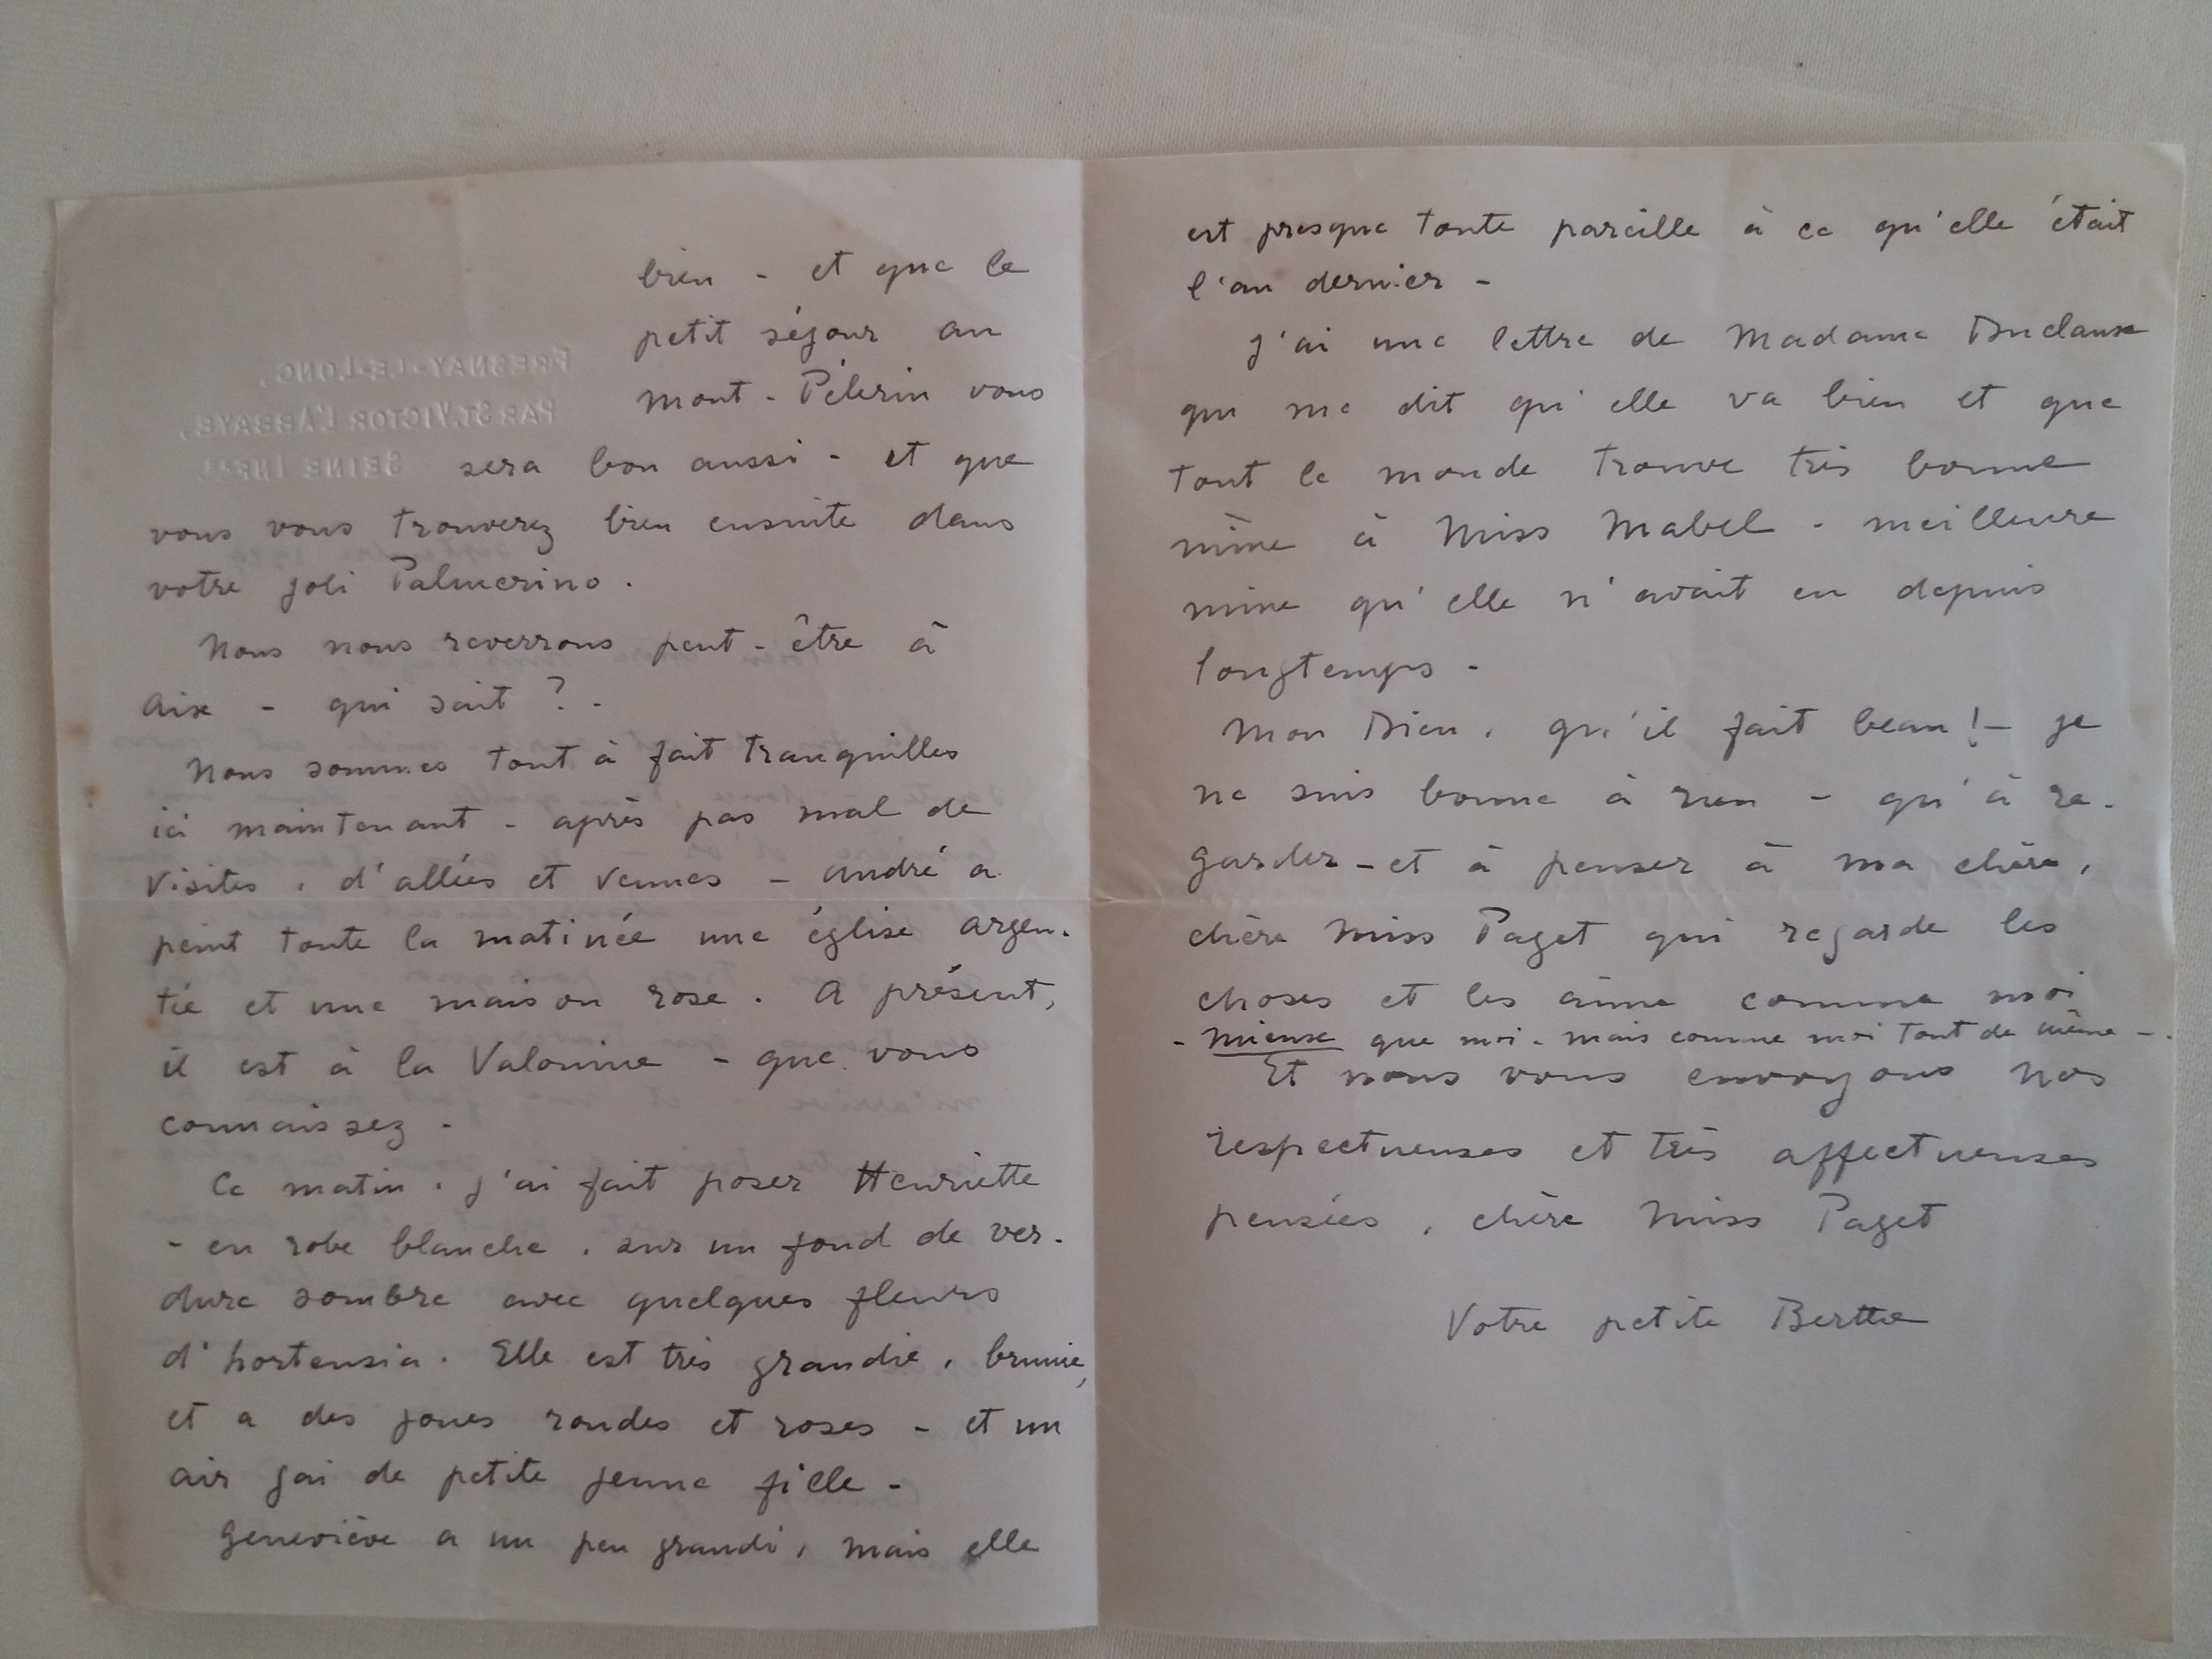 bien - et que le
petit séjour au
mont-Pèlerin vous
sera bon aussi - et que
vous vous trouverez bien ensuite dans
votre joli Palmerino.
Nous nous reverrons peut-être à
Aix - qui sait ? -
Nous sommes tout à fait tranquilles
ici maintenant - après pas mal de
visites, d'allées et venues - André a
peint toute la matinée une église argen-
tée et une maison rose. A présent,
il est à la Valouine - que vous
connaissez -
Ce matin, j'ai fait poser Henriette
- en robe blanche, sur un fond de ver-
dure sombre avec quelques fleurs
d'hortensia. Elle est très grandie, brunie,
et a des joues rondes et roses - et un
air gai de petite jeune fille -
Geneviève a un peu grandi, mais elle
est presque toute pareille à ce qu'elle était
l'an dernier -
J'ai une lettre de Madame Duclaux
qui me dit qu'elle va bien et que
tout le monde trouve très bonne
mine à Miss Mabel - meilleure
mine qu'elle n'avait eu depuis
longtemps -
Mon Dieu, qu'il fait beau ! - je
ne suis bonne à rien - qu'à re-
garder - et à penser à ma chère,
chère Miss Paget qui regarde les
choses et les aime comme moi
- mieux que moi - mais comme moi tout de même -
Et nous vous envoyons nos
respectueuses et très affectueuses
pensées, chère Miss Paget
Votre petite Berthe
FRESNAY-LE-LONG,
PAR ST. VICTOR L'ABBAYE,